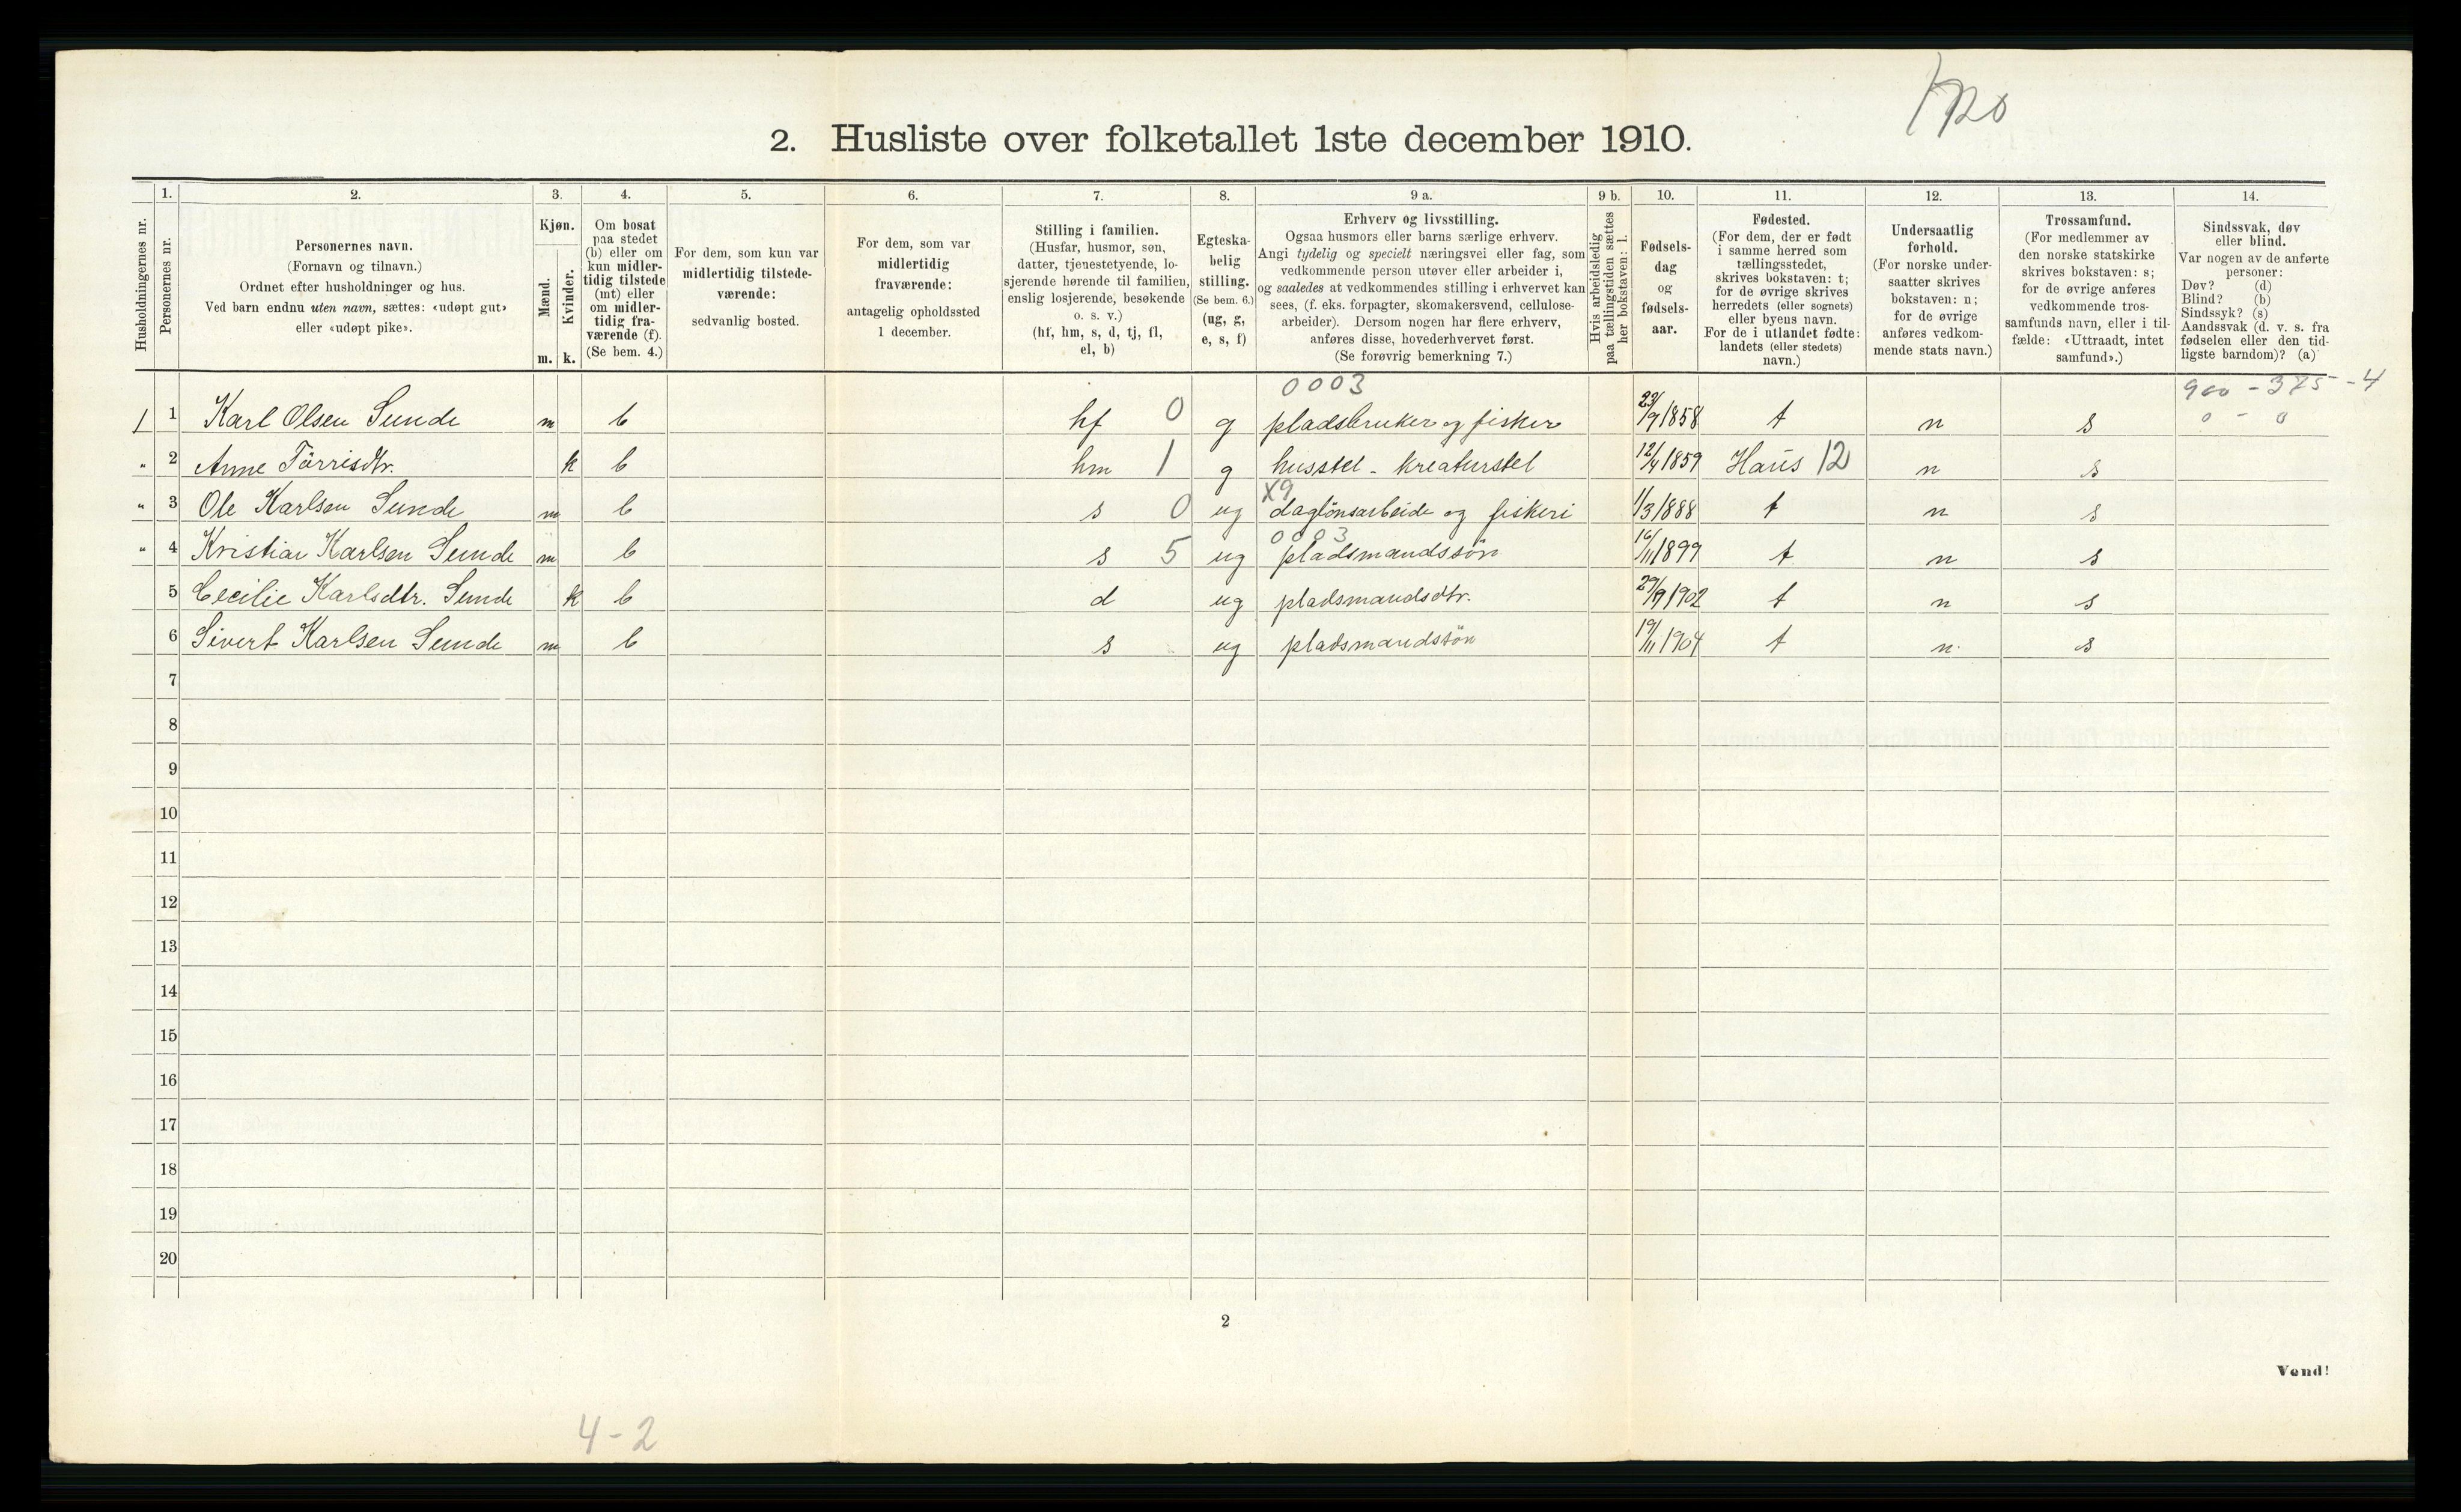 2. Husliste over folketallet 1ste december 1910.
Husholdningernes nr.
1.
Personernes nr.
2.
Personernes navn.
(Fornavn og tilnavn.)
Ordnet efter husholdninger og hus.
Ved barn endnu uten navn, sættes: «udøpt gut»
eller «udøpt pike».
3.
Kjøn.
Mænd.
Kvinder.
m. k.
4.
Om bosat
paa stedet
(b) eller om
kun midler-
tidig tilstede
(mt) eller
om midler-
tidig fra-
værende (f).
(Se bem. 4.)
5.
For dem, som kun var
midlertidig tilstede-
værende:
sedvanlig bosted.
6.
For dem, som var
midlertidig
fraværende:
antagelig opholdssted
1 december.
7.
Stilling i familien.
(Husfar, husmor, søn,
datter, tjenestetyende, lo-
sjerende hørende til familien,
enslig losjerende, besøkende
o. s. v.)
(hf, hm, s, d, tj, fl,
el, b)
8.
Egteska-
belig
stilling.
(Se bem. 6.)
(ug, g,
e, s, f)
9 a.
Erhverv og livsstilling.
Ogsaa husmors eller barns særlige erhverv.
Angi tydelig og specielt næringsvei eller fag, som
vedkommende person utøver eller arbeider i,
og saaledes at vedkommendes stilling i erhvervet kan
sees, (f. eks. forpagter, skomakersvend, cellulose-
arbeider). Dersom nogen har flere erhverv,
anføres disse, hovederhvervet først.
(Se forøvrig bemerkning 7.)
9 b.
Hvis arbeidsledig
paa tællingstiden sættes
her bokstaven: l.
10.
Fødsels-
dag
og
fødsels-
aar.
11.
Fødested.
(For dem, der er født
i samme herred som
tællingsstedet,
skrives bokstaven: t;
for de øvrige skrives
herredets (eller sognets)
eller byens navn.
For de i utlandet fødte:
landets (eller stedets)
navn.)
12.
Undersaatlig
forhold.
(For norske under-
saatter skrives
bokstaven: n;
for de øvrige
anføres vedkom-
mende stats navn.)
13.
Trossamfund.
(For medlemmer av
den norske statskirke
skrives bokstaven: s;
for de øvrige anføres
vedkommende tros-
samfunds navn, eller i til-
fælde: «Uttraadt, intet
samfund».)
14.
Sindssvak, døv
eller blind.
Var nogen av de anførte
personer:
Døv? (d)
Blind? (b)
Sindssyk? (s)
Aandssvak (d. v. s. fra
fødselen eller den tid-
ligste barndom)? (a)
0003 900 - 375 - 4
1 1 Karl Olsen Sunde m b hf 0 g pladsbruker og fisker 23/9 1858 t n s 0 - 0
" 2 Anne Törrisdtr. k b hm 1 g husstel - kreaturstel 12/4 1859 Haus 12 n s
X9
" 3 Ole Karlsen Sunde m b s 0 ug daglönsarbeide og fiskeri 1/3 1888 t n s
0003
" 4 Kristian Karlsen Sunde m b s 5 ug pladsmandssön 16/11 1899 t n s
5 Cecilie Karlsdtr. Sunde k b d ug pladsmandsdtr. 29/9 1902 t n s
6 Sivert Karlsen Sunde m b s ug pladsmandssön 19/11 1904 t n s
7
8
9
10
11
12
13
14
15
16
17
18
19
20
2
Vend!
4-2